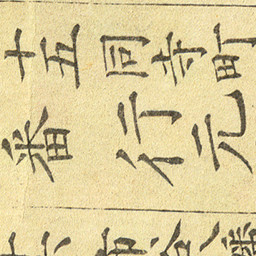 十五同寺町
番行元